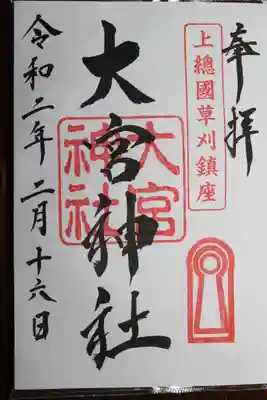 奉拝
上總國草刈鎮座
大宮神社
大宮
神社
令和二年二月十六日